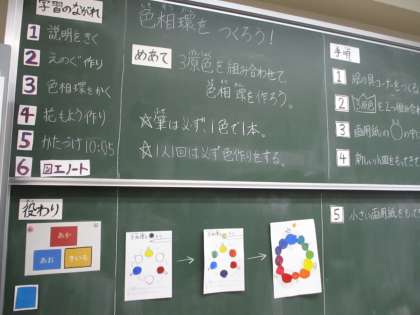 学習のながれ
1 説明をきく
2 えのぐ作り
3 色相環をかく
4 花もよう作り
5 かたづけ 10:05
6 図工ノート
色相環をつくろう!
めあて
3原色を組み合わせて
色相環を作ろう。
☆筆は必ず、1色で1本。
☆1人1回は必ず色作りをする。
手順
1 絵の具コーナーをつくる
2
3 画用紙の○の中に
4 新しい小皿をもってき
5 小さい画用紙をもってき
役わり
あか
あお
きいろ